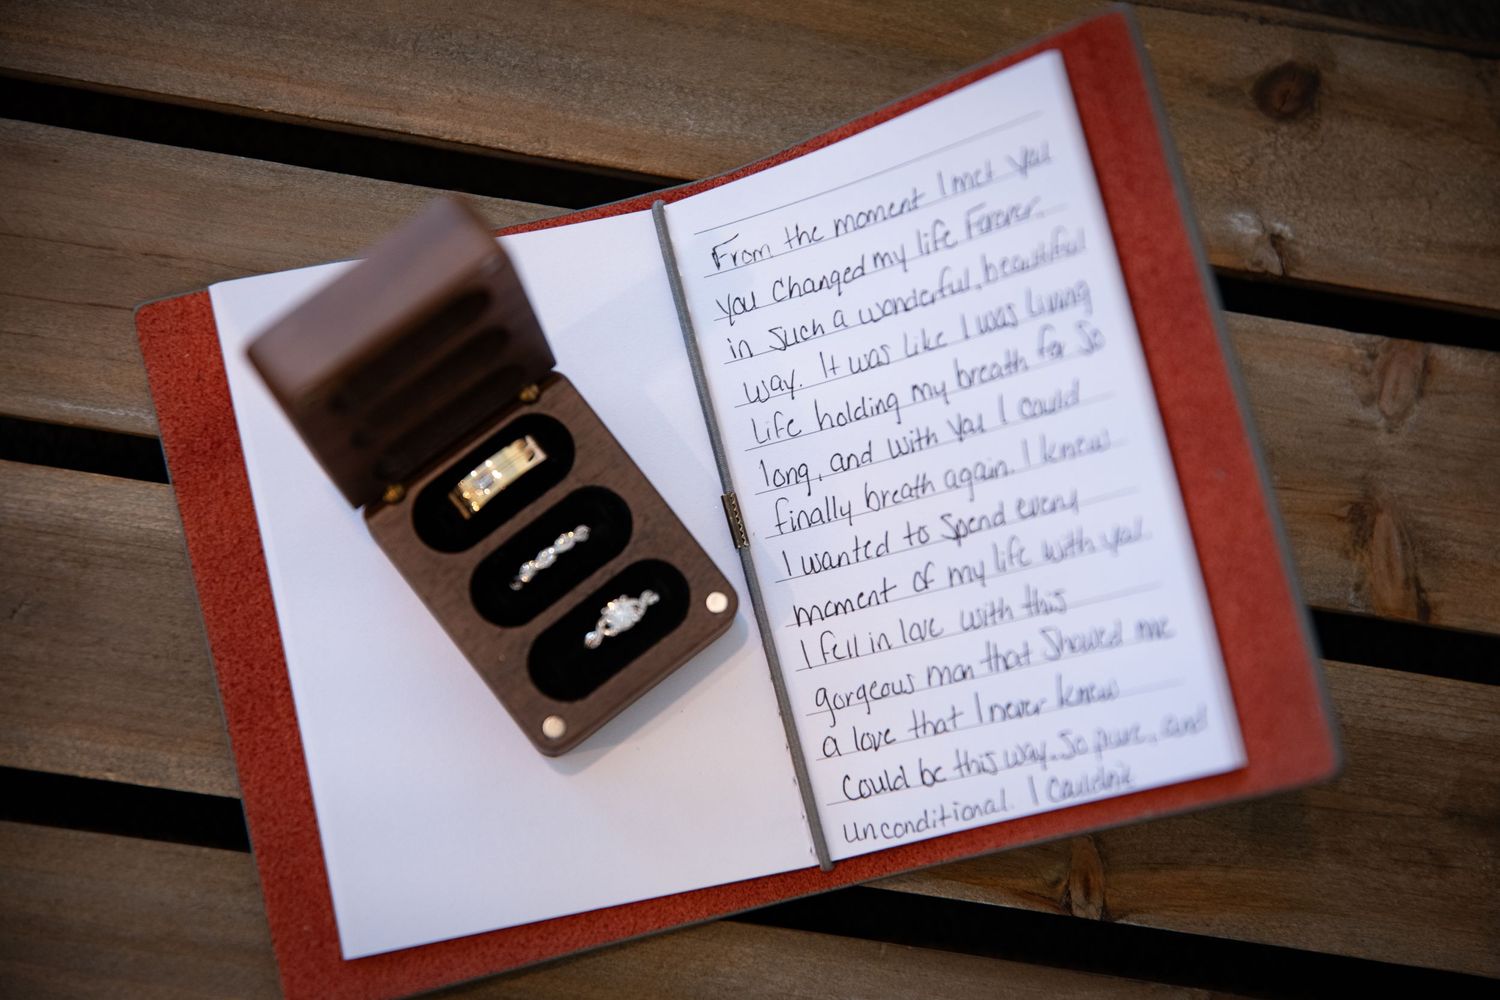 From the moment I met you
you changed my life Forever.
in such a wonderful, beautiful
way. It was like I was living
life holding my breath for so
long, and with you I could
finally breath again. I knew
I wanted to spend every
moment of my life with you.
I fell in love with this
gorgeous man that showed me
a love that I never knew
could be this way. So pure, and
unconditional. I couldn't